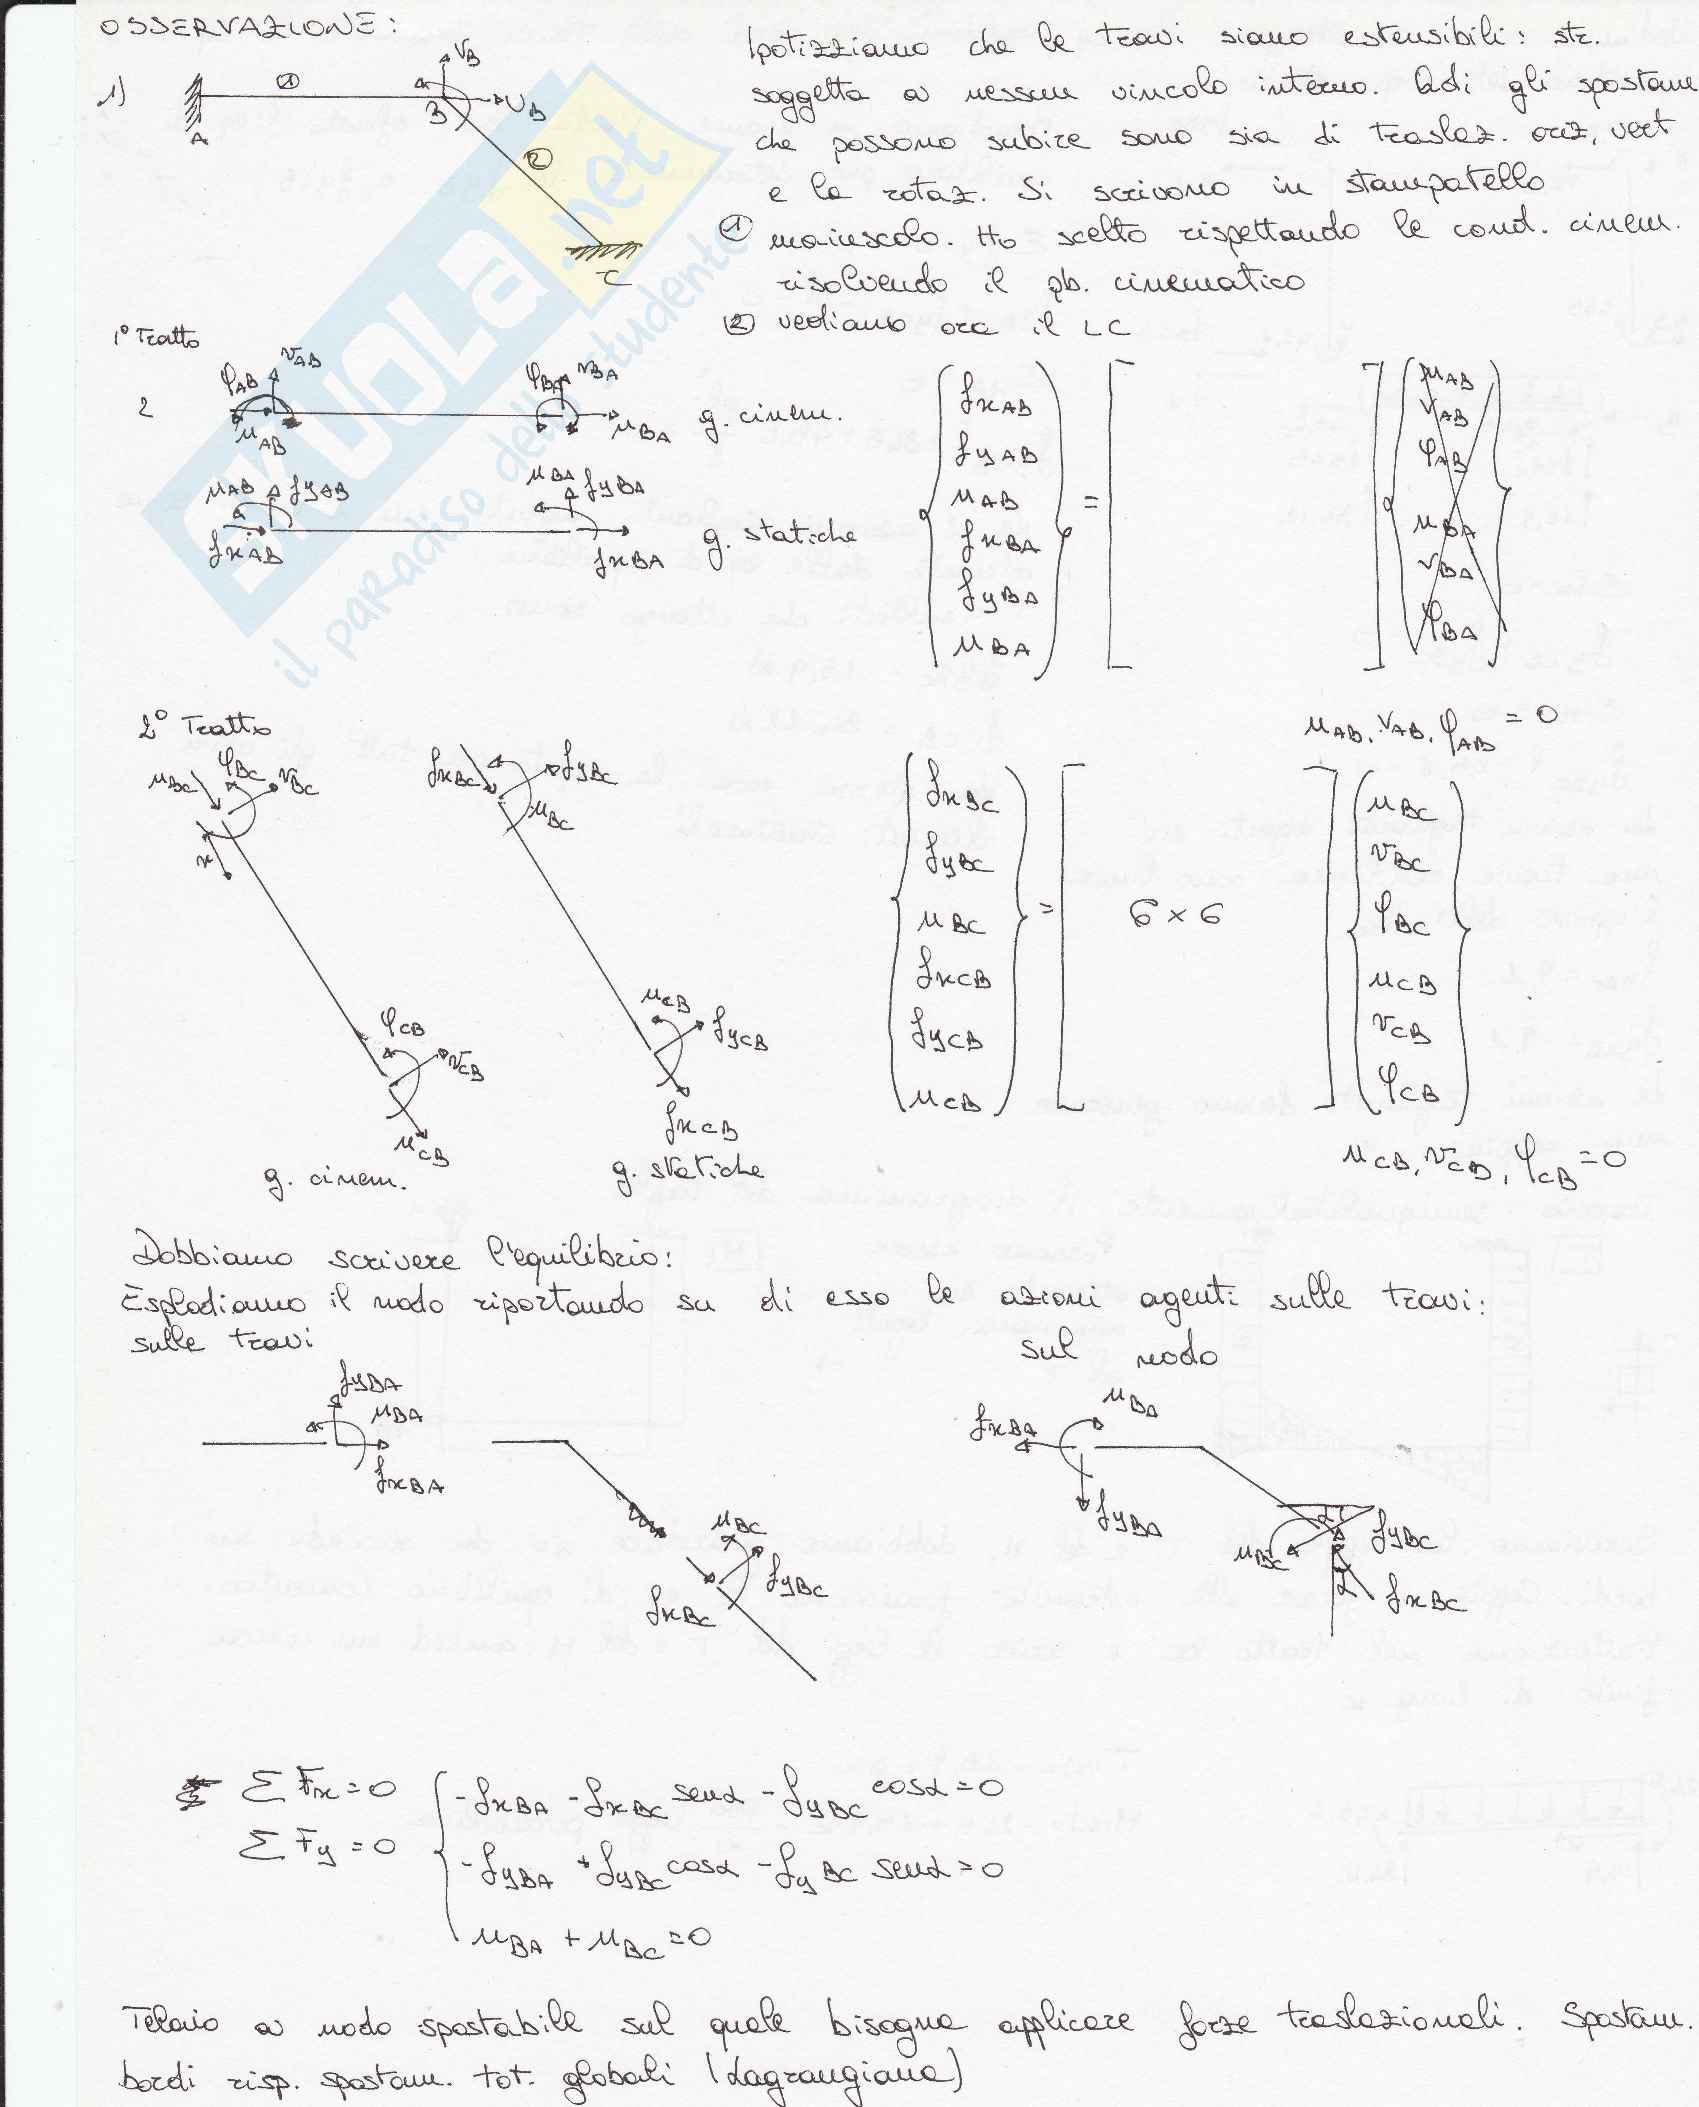 OSSERVAZIONE:
Ipotizziamo che le travi siano estensibili: str.
soggetta a nessun vincolo interno. Qdi gli spostam
che possono subire sono sia di traslaz. oriz, vert
e la rotaz. Si scrivono in stampatello
① maiuscolo. Ho scelto rispettando le cond. cinem.
risolvendo il pb. cinematico
② vediamo ora il LC
1) ① VB
UB
A B
②
C
1° Tratto
2 φAB vAB φBA vBA
uAB uBA g. cinem.
μAB fyAB μBA fyBA
fxAB fxBA g. statiche
fxAB
fyAB
μAB
fxBA
fyBA
μBA
=
uAB
vAB
φAB
uBA
vBA
φBA
uAB, vAB, φAB = 0
2° Tratto
uBC φBC vBC
x
φCB vCB
uCB
g. cinem.
fxBC fyBC
μBC
μCB fyCB
fxCB
g. statiche
fxBC
fyBC
μBC
fxCB
fyCB
μCB
= 6 x 6
uBC
vBC
φBC
uCB
vCB
φCB
uCB, vCB, φCB = 0
Dobbiamo scrivere l'equilibrio:
Esplodiamo il nodo riportando su di esso le azioni agenti sulle travi:
sulle travi
sul nodo
fyBA
μBA
fxBA
μBC
fyBC
fxBC
μBA
fxBA
fyBA
α
fyBC
μBC
α
fxBC
ΣFx=0 -fxBA -fxBC senα -fyBC cosα=0
ΣFy=0 -fyBA +fyBC cosα -fyBC senα=0
μBA + μBC=0
Telaio a nodo spostabile sul quale bisogna applicare forze traslazionali. Spostam.
bordi risp. spostam. tot. globali (Lagrangiana)
SKUOLA.net
il paradiso dello studente